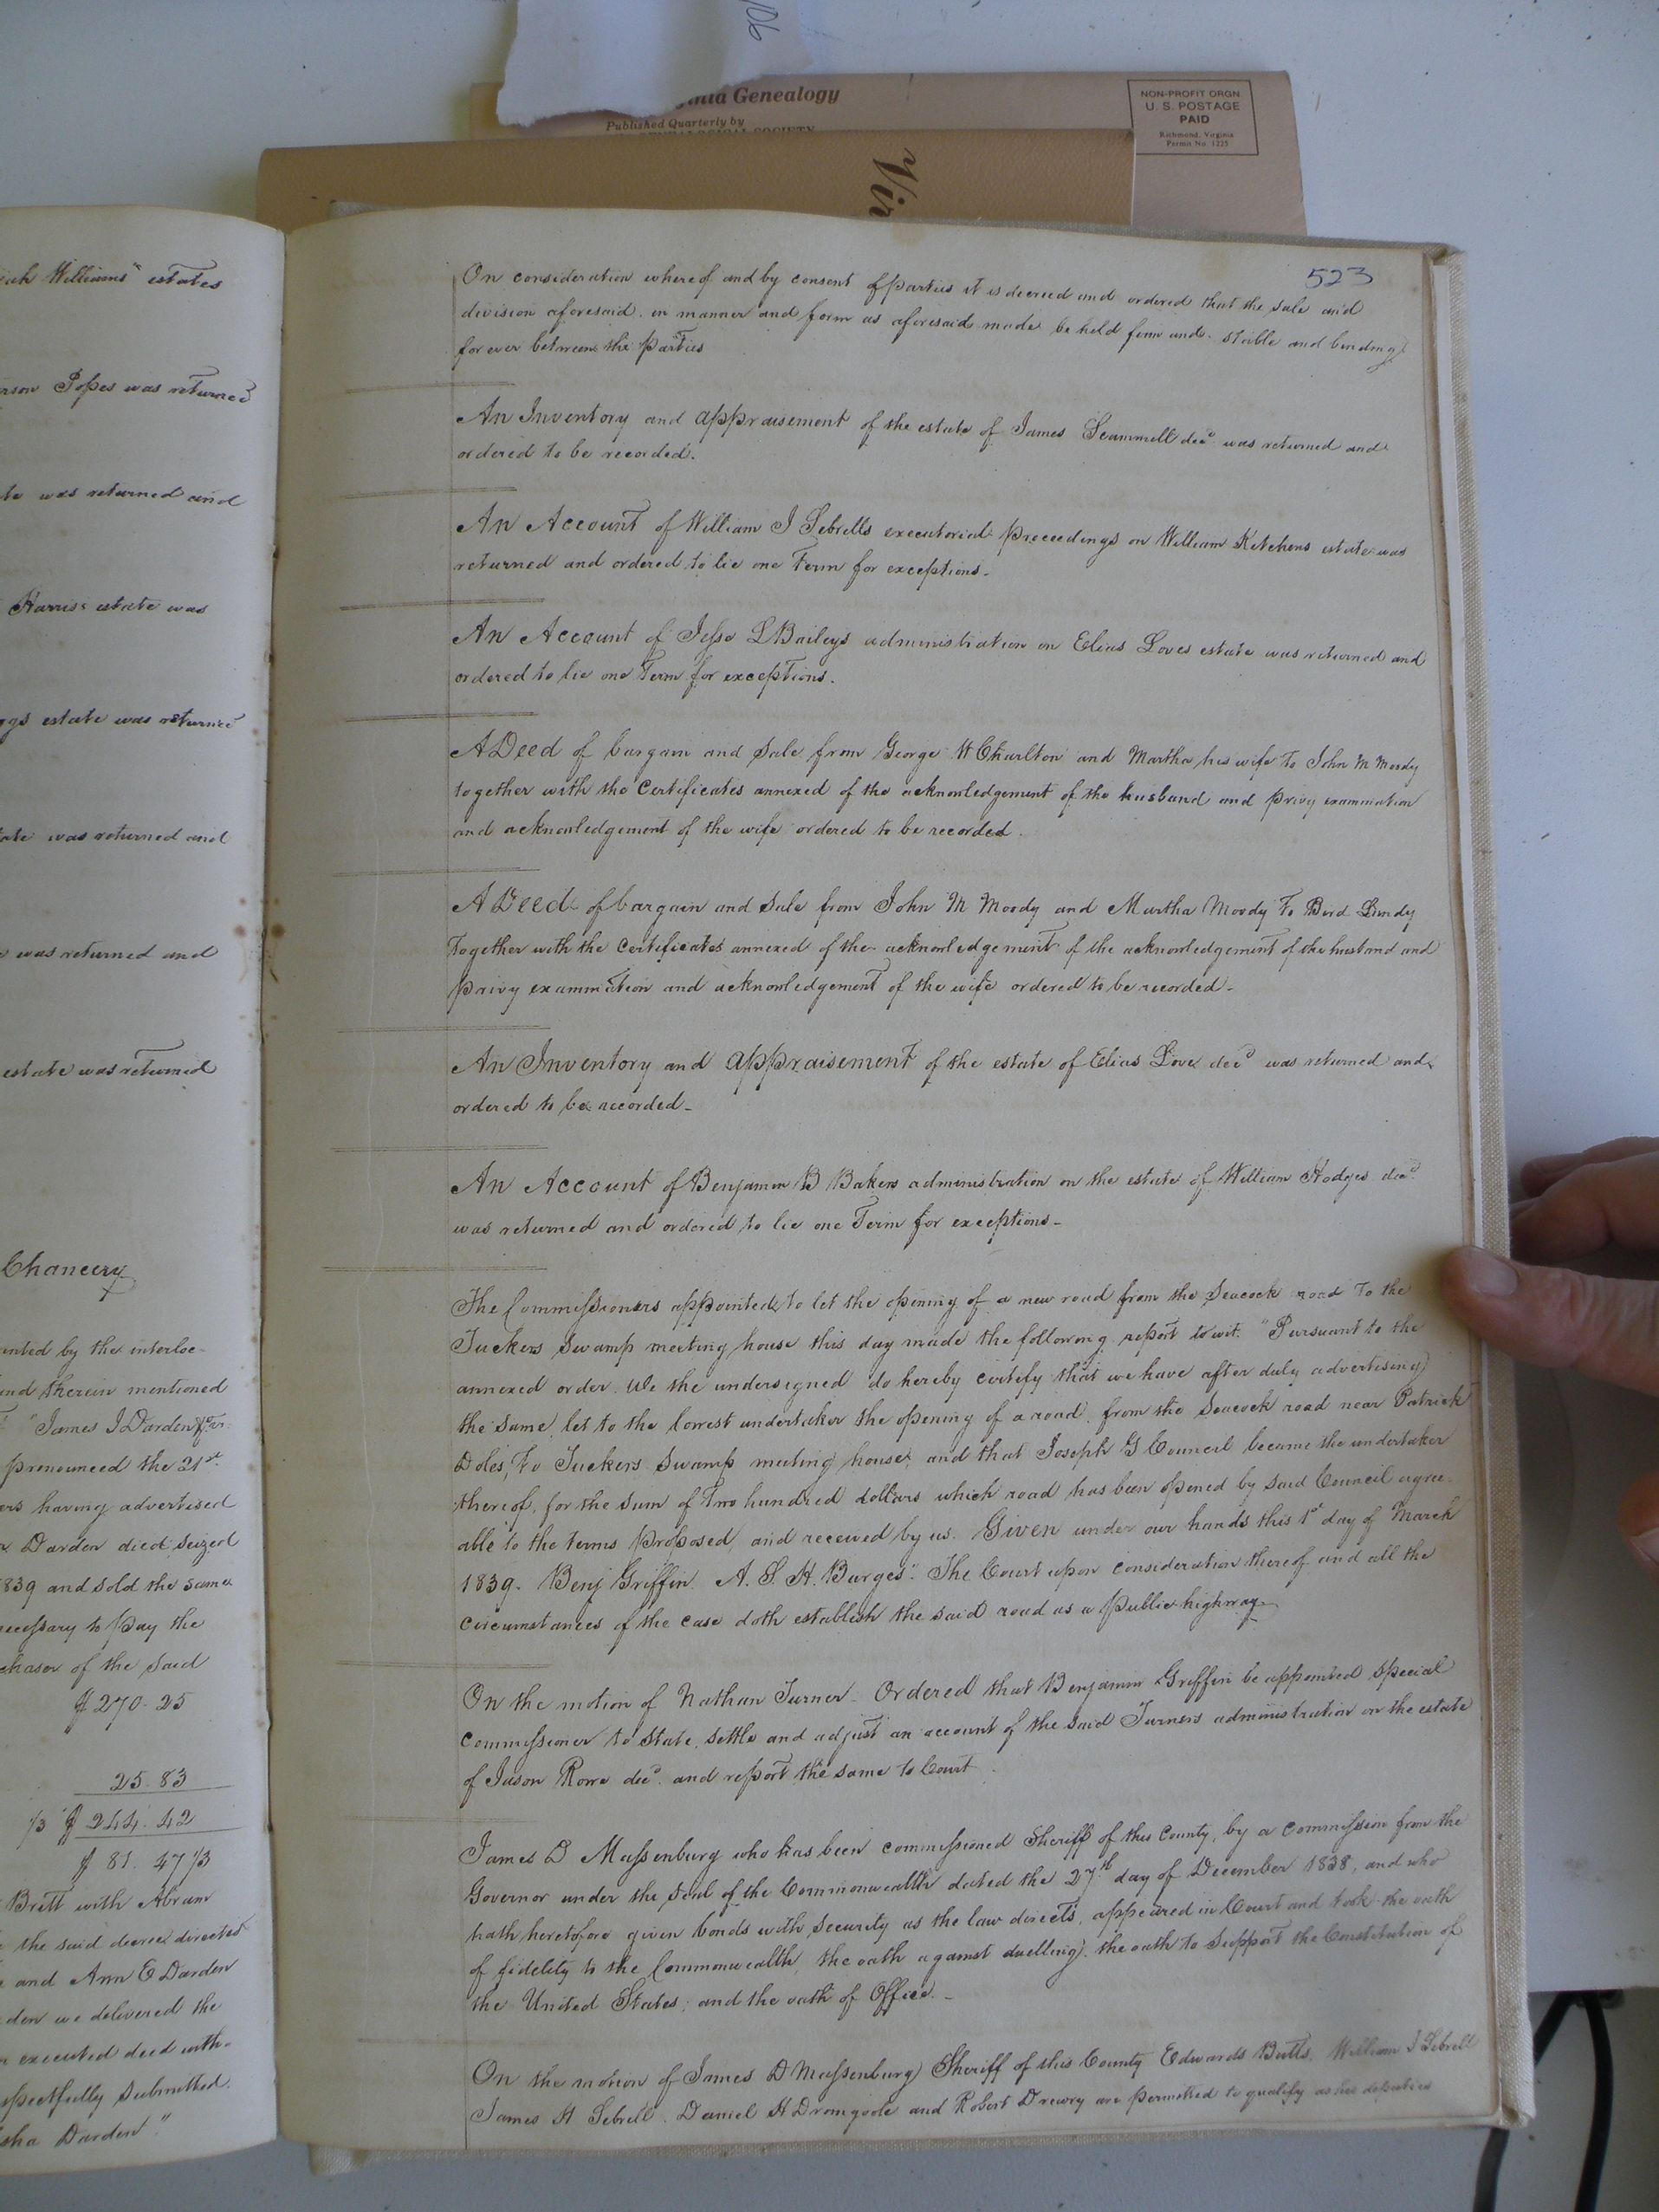 106
Virginia Genealogy
Published Quarterly by
NON-PROFIT ORGN.
U. S. POSTAGE
PAID
Richmond, Virginia
Permit No. 1225
Vir
Williams" estates
Popes was returned
was returned and
Harris's estate was
estate was returned
was returned and
was returned and
estate was returned
Chancery
by the interloc-
and therein mentioned
"James J Darden &c
pronounced the 21st
having advertised
Darden died seized
1839 and sold the same
necessary to pay the
of the said
$270.25
25.83
1/3 $244.42
$81.47 1/3
Brett with Abram
the said decree directed
and Ann E Darden
we delivered the
executed deed with-
submitted.
Darden"
523
On consideration whereof and by consent of parties it is decreed and ordered that the sale and
division aforesaid in manner and form as aforesaid made be held firm and stable and binding
forever between the parties
An Inventory and appraisement of the estate of James Scammell decd was returned and
ordered to be recorded.
An Account of William J Sebrells executorial proceedings on William Kitchens estate was
returned and ordered to lie one Term for exceptions-
An Account of Jesse L Baileys administration on Elias Loves estate was returned and
ordered to lie one Term for exceptions.
A Deed of bargain and Sale from George W Charlton and Martha his wife to John M Moody
together with the Certificates annexed of the acknowledgement of the husband and privy examination
and acknowledgement of the wife ordered to be recorded.
A Deed of bargain and Sale from John M Moody and Martha Moody To Bird Lundy
Together with the Certificates annexed of the acknowledgement of the acknowledgement of the husband and
privy examination and acknowledgement of the wife ordered to be recorded-
An Inventory and appraisement of the estate of Elias Love decd was returned and
ordered to be recorded-
An Account of Benjamin B Bakers administration on the estate of William Hodges decd
was returned and ordered to lie one Term for exceptions-
The Commissioners appointed to let the opening of a new road from the Seacock road To the
Tuckers Swamp meeting house this day made the following report to wit: "Pursuant to the
annexed order We the undersigned do hereby certify that we have after duly advertising
the same, let to the lowest undertaker the opening of a road from the Seacock road near Patrick
Doles, To Tuckers Swamp meeting house, and that Joseph G Council became the undertaker
thereof, for the sum of Two hundred dollars which road has been opened by said Council agree-
able to the terms proposed, and received by us. Given under our hands this 1st day of March
1839. Benj Griffin. A. S. H. Burges". The Court upon consideration thereof and all the
circumstances of the case doth establish the said road as a public highway
On the motion of Nathan Turner- Ordered that Benjamin Griffin be appointed special
Commissioner to state, settle and adjust an account of the said Turners administration on the estate
of Jason Rowe decd. and report the same to Court.
James D Massenburg who has been commissioned Sheriff of this County, by a commission from the
Governor under the seal of the Commonwealth dated the 27th day of December 1838, and who
hath heretofore given bonds with security as the law directs, appeared in Court and took the oath
of fidelity to the Commonwealth, the oath against duelling, the oath to support the Constitution of
the United States; and the oath of Office.-
On the motion of James D Massenburg Sheriff of this County Edwards Butts, William J Sebrell
James H Sebrell. Daniel H Dromgoole and Robert Drewry are permitted to qualify as his deputies